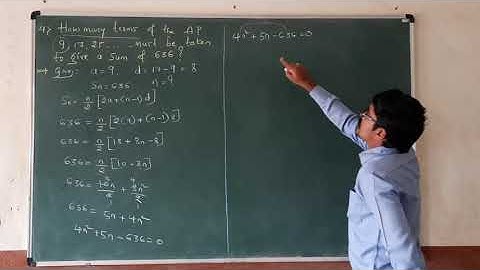 4) How many terms of the AP
9, 17, 25 ..... must be taken
to give a sum of 636?
Given: a = 9. d = 17 - 9 = 8
Sn = 636 n = ?
Sn = n/2 [2a + (n-1) d]
636 = n/2 [2(9) + (n-1) 8]
636 = n/2 [18 + 8n - 8]
636 = n/2 [10 + 8n]
636 = 10n/2 + 8n²/2
636 = 5n + 4n²
4n² + 5n - 636 = 0
4n² + 5n - 636 = 0